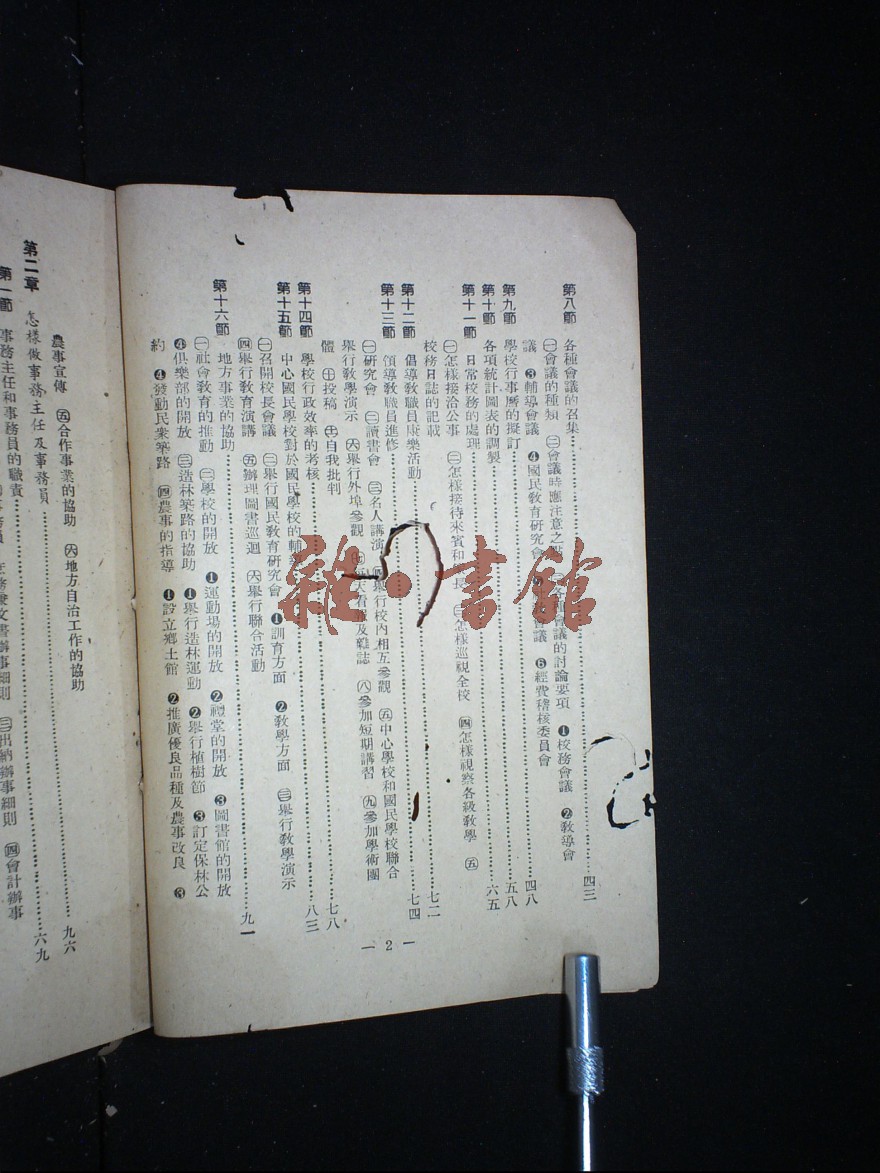 第八節　各種會議的召集……四三
㊀會議的種類　㊁會議時應注意之　各種會議的討論要項　❶校務會議　❷教導會
議　❸輔導會議　❹國民教育研究會　會議　❻經費稽核委員會
第九節　學校行事曆的擬訂……四八
第十節　各項統計圖表的調製……五八
第十一節　日常校務的處理……六五
㊀怎樣接洽公事　㊁怎樣接待來賓和　長　㊂怎樣巡視全校　㊃怎樣視察各級教學　㊄
校務日誌的記載
第十二節　倡導教職員康樂活動……七二
第十三節　領導教職員進修……七四
㊀研究會　㊁讀書會　㊂名人講演　㊃舉行校內相互參觀　㊄中心學校和國民學校聯合
舉行教學演示　㊅舉行外埠參觀　天看報及雜誌　㊇參加短期講習　㊈參加學術團
體　㊉投稿　自我批判
第十四節　學校行政效率的考核……七八
第十五節　中心國民學校對於國民學校的輔……八三
㊀召開校長會議　㊁舉行國民教育研究會　❶訓育方面　❷教學方面　㊂舉行教學演示
㊃舉行教育演講　㊄辦理圖書巡迴　㊅舉行聯合活動
第十六節　地方事業的協助……九一
㊀社會教育的推動　㊁學校的開放　❶運動場的開放　❷禮堂的開放　❸圖書館的開放
❹俱樂部的開放　㊂造林築路的協助　❶舉行造林運動　❷舉行植樹節　❸訂定保林公
約　❹發動民衆築路　㊃農事的指導　❶設立鄉土館　❷推廣優良品種及農事改良　❸
— 2 —
農事宣傳　㊄合作事業的協助　㊅地方自治工作的協助
第二章　怎樣做事務主任及事務員……九六
第一節　事務主任和事務員的職責……六九
文書辦事細則　㊁出納辦事細則　㊃會計辦事
雜·書館